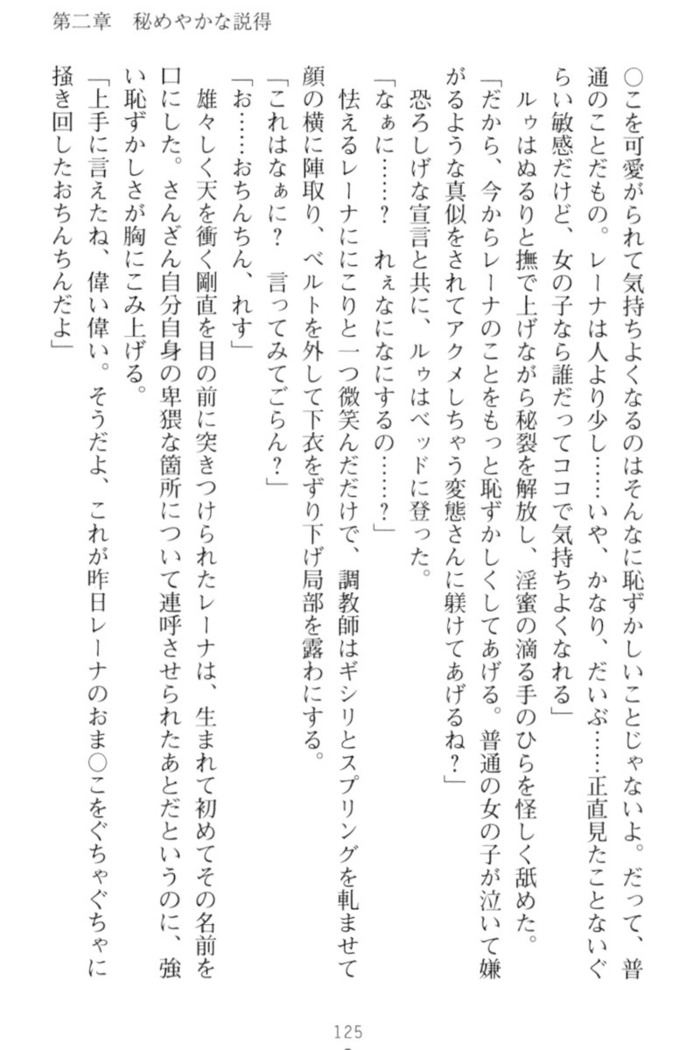 第二章　秘めやかな説得
〇こを可愛がられて気持ちよくなるのはそんなに恥ずかしいことじゃないよ。だって、普
通のことだもの。レーナは人より少し……いや、かなり、だいぶ……正直見たことないぐ
らい敏感だけど、女の子なら誰だってココで気持ちよくなれる」
　ルゥはぬるりと撫で上げながら秘裂を解放し、淫蜜の滴る手のひらを怪しく舐めた。
「だから、今からレーナのことをもっと恥ずかしくしてあげる。普通の女の子が泣いて嫌
がるような真似をされてアクメしちゃう変態さんに躾けてあげるね？」
　恐ろしげな宣言と共に、ルゥはベッドに登った。
「なぁに……？　れぇなになにするの……？」
　怯えるレーナににこりと一つ微笑んだだけで、調教師はギシリとスプリングを軋ませて
顔の横に陣取り、ベルトを外して下衣をずり下げ局部を露わにする。
「これはなぁに？　言ってみてごらん？」
「お……おちんちん、れす」
　雄々しく天を衝く剛直を目の前に突きつけられたレーナは、生まれて初めてその名前を
口にした。さんざん自分自身の卑猥な箇所について連呼させられたあとだというのに、強
い恥ずかしさが胸にこみ上げる。
「上手に言えたね、偉い偉い。そうだよ、これが昨日レーナのおま〇こをぐちゃぐちゃに
掻き回したおちんちんだよ」
125